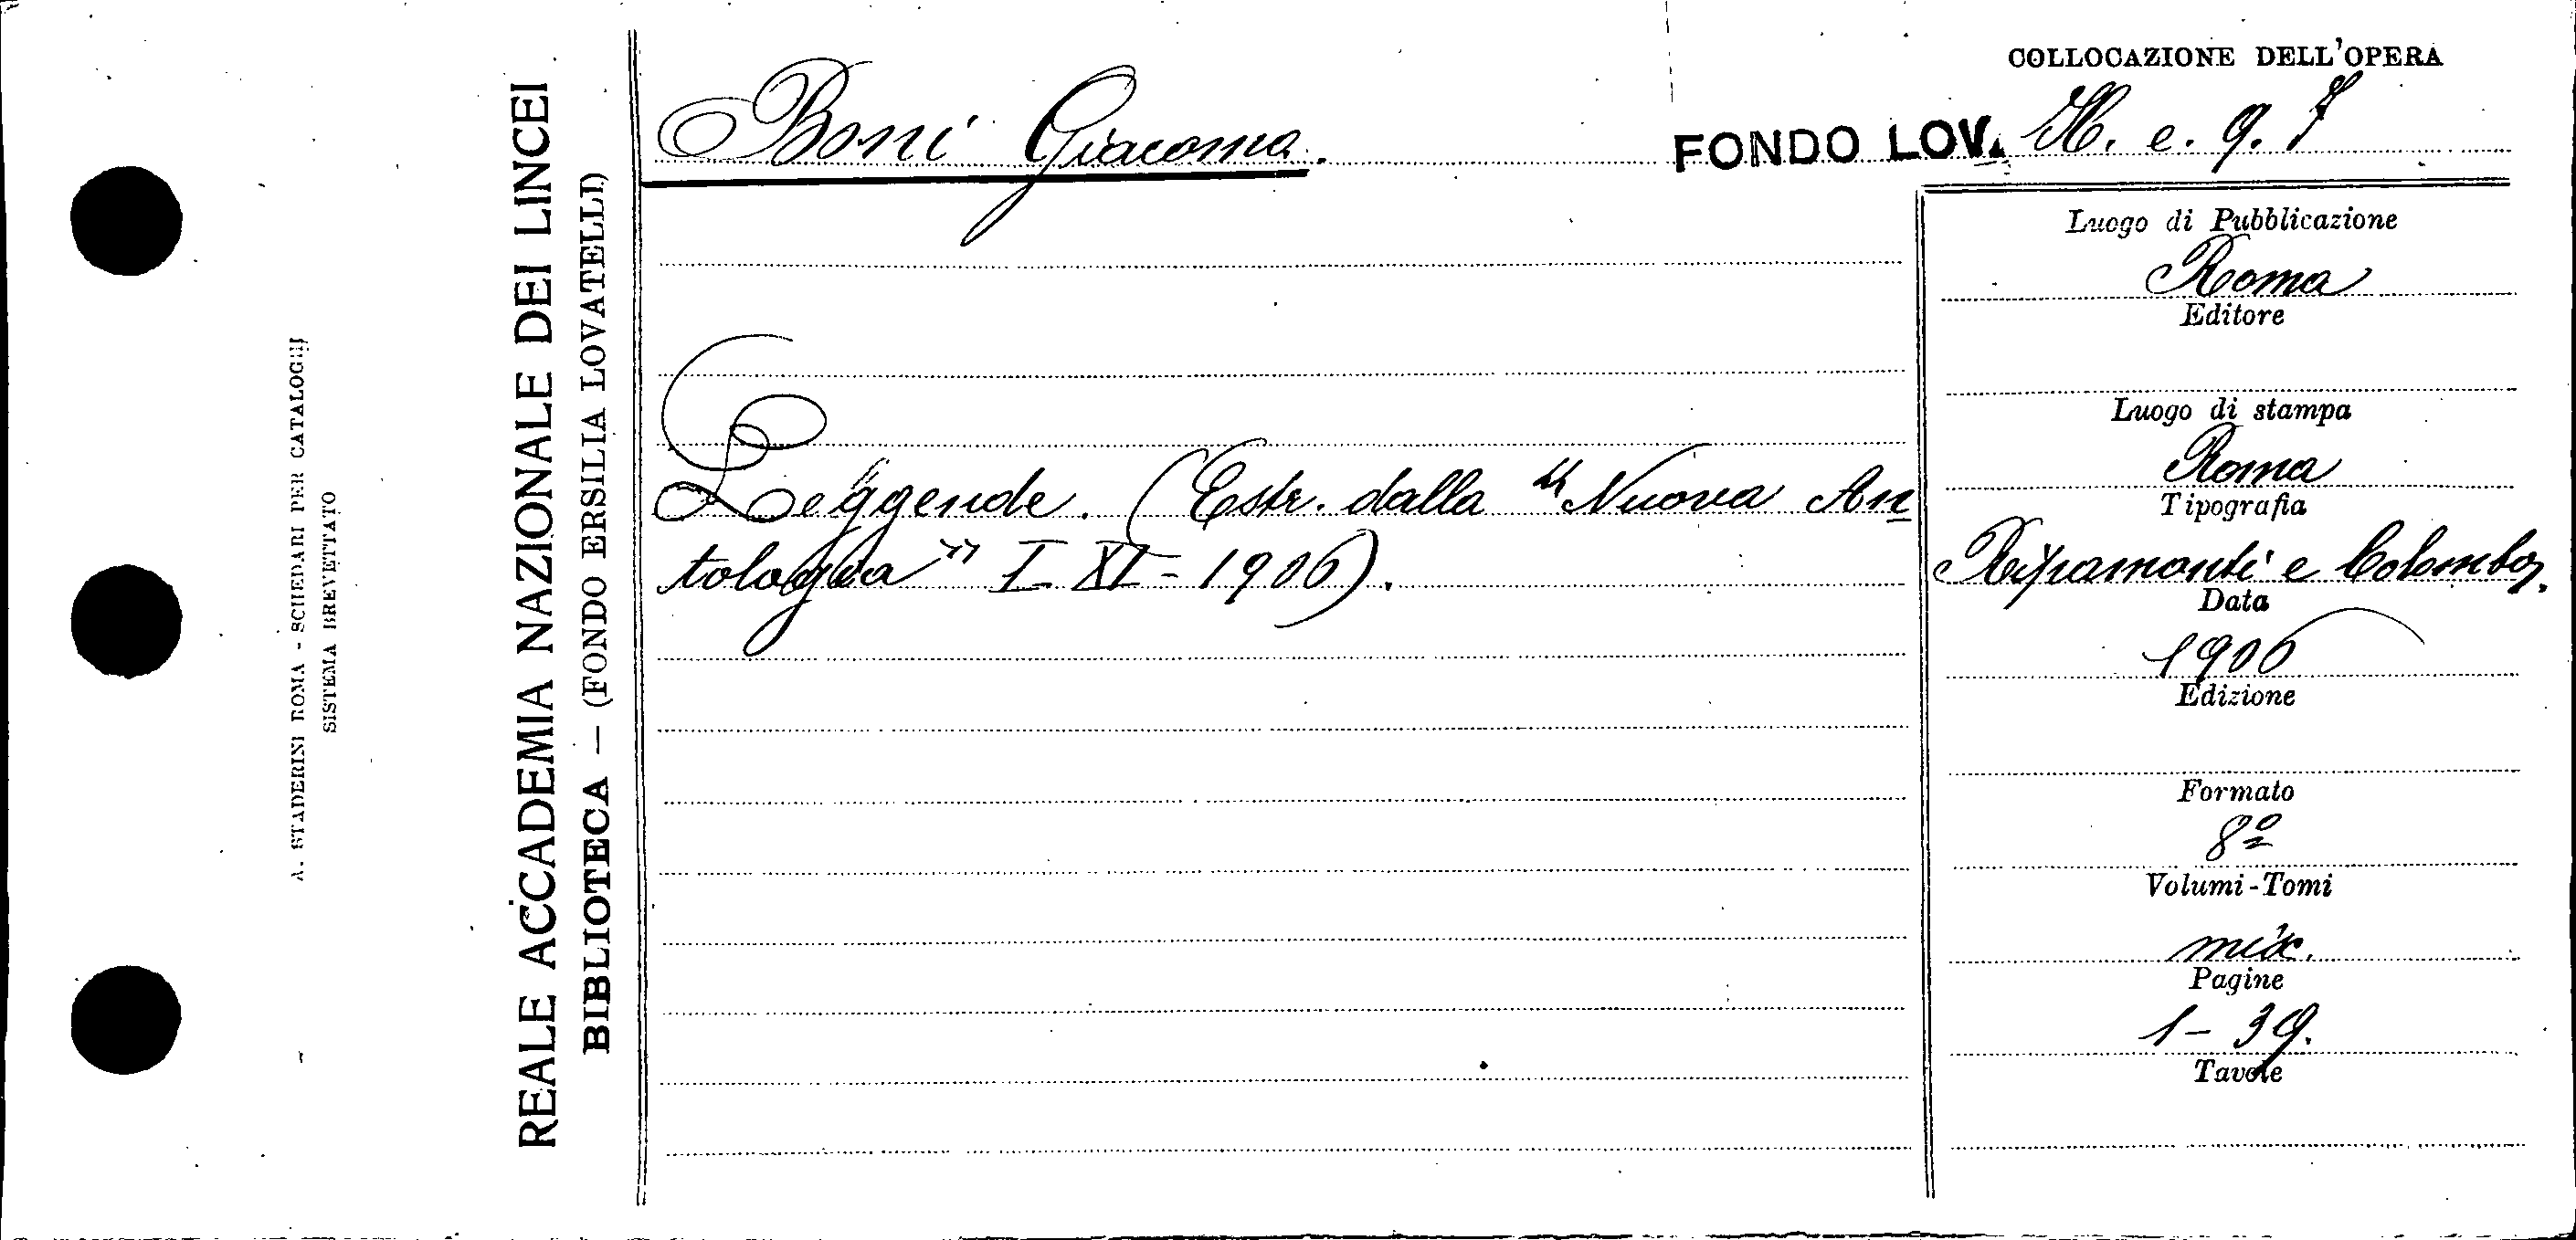 COLLOCAZIONE DELL'OPERA
Boni Giacomo.
FONDO LOV. e. 9. 7
Leggende. (Estr. dalla "Nuova An
tologia" I-XI-1906).
Luogo di Pubblicazione
Roma
Editore
Luogo di stampa
Roma
Tipografia
Ripamonti e Colombo.
Data
1906
Edizione
Formato
8º
Volumi-Tomi
Pagine
1-39.
Tavole
REALE ACCADEMIA NAZIONALE DEI LINCEI
BIBLIOTECA — (FONDO ERSILIA LOVATELLI)
A. STADERINI ROMA - SCHEDARI PER CATALOGHI
SISTEMA BREVETTATO